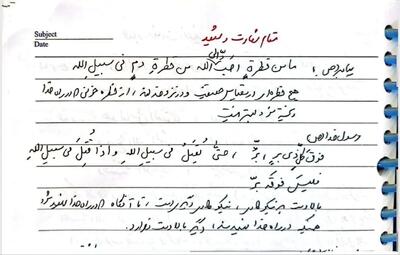 Subject
Date
مقام شهادت و شهید
پیامبر(ص) : ما من قطرةٍ احبَّ الی الله من قطرةِ دمٍ فی سبیل الله
هیچ قطره‌ای در مقیاس حقیقت و در نزد خدا از قطره خونی که در راه خدا
ریخته شود بهتر نیست
رسول خدا(ص)
فوق کلِّ ذی برٍّ برٌّ ، حتّی یُقتَلُ فی سبیل الله و اذا قُتِلَ فی سبیل الله
فلیسَ فوقَه برٌّ
بالادست هر نیکوکاری، نیکوکار دیگری است، تا آنگاه که در راه خدا شهید شود
همینکه در راه خدا شهید شد، دیگر بالادست ندارد.